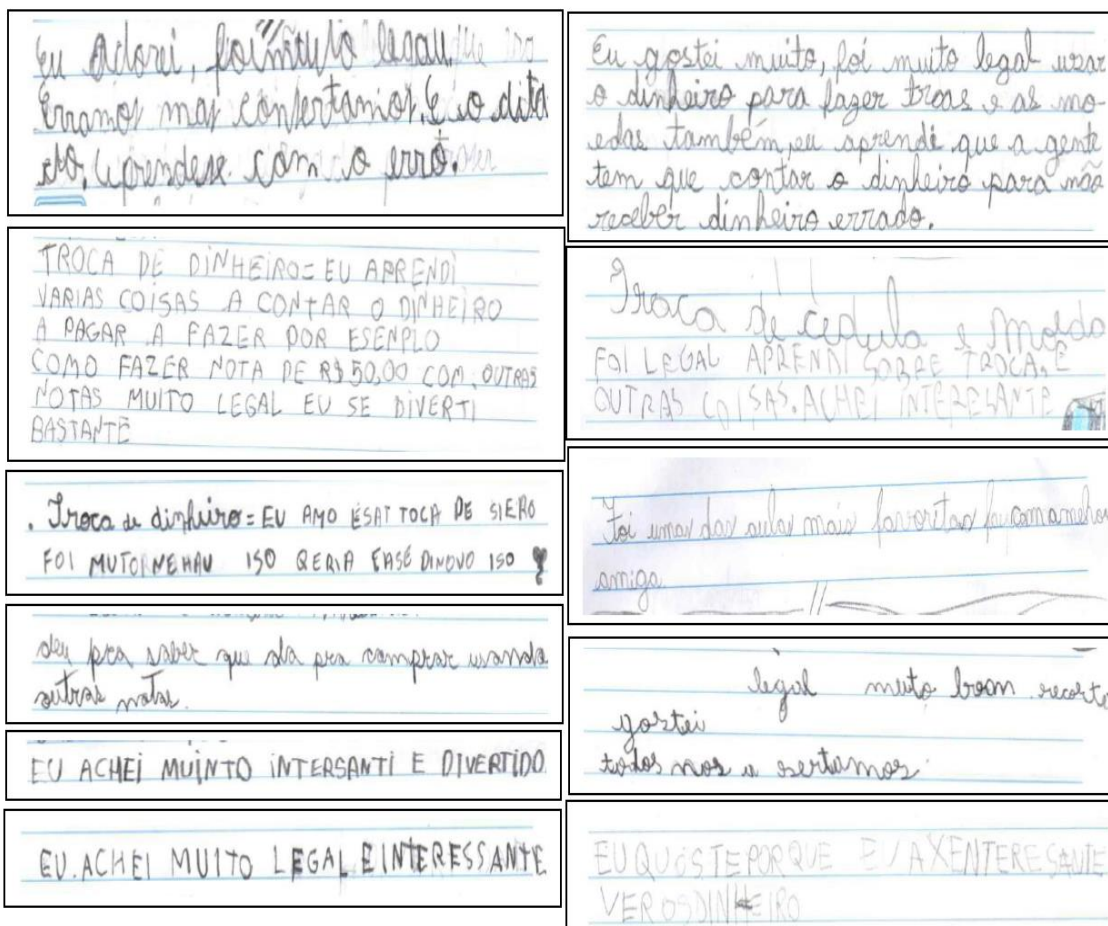 Eu Adorei, foi muito legau
Erramos mas consertamos, E o dita
do, Aprendese com o erro.
TROCA DE DINHEIRO= EU APRENDI
VARIAS COISAS A CONTAR O DINHEIRO
A PAGAR A FAZER POR ESENPLO
COMO FAZER NOTA DE R$50,00 COM OUTRAS
NOTAS MUITO LEGAL EU SE DIVERTI
BASTANTE
. Troca de dinheiro= EU AMO ESAT TOCA DE SIERO
FOI MUTO ISO QERIA FASE DINOVO ISO
deu pra saber que da pra comprar usando
outras notas.
EU ACHEI MUINTO INTERSANTI E DIVERTIDO
EU.ACHEI MUITO LEGAL E INTERESSANTE
Eu gostei muito, foi muito legal usar
o dinheiro para fazer troas e as mo-
edas também, eu aprendi que a gente
tem que contar o dinheiro para não
receber dinheiro errado.
Troca de cedula e Moeda
FOI LEGAL APRENDI SOBRE TROCA, E
OUTRAS COISAS. ACHEI INTERESANTE
Foi umas das aulas mais favoritas
amiga
legal muto boom recorte
gostei
todos nos a sertamos
EU QUOSTE POR QUE EU AXENTERESANTE
VER OS DINHEIRO